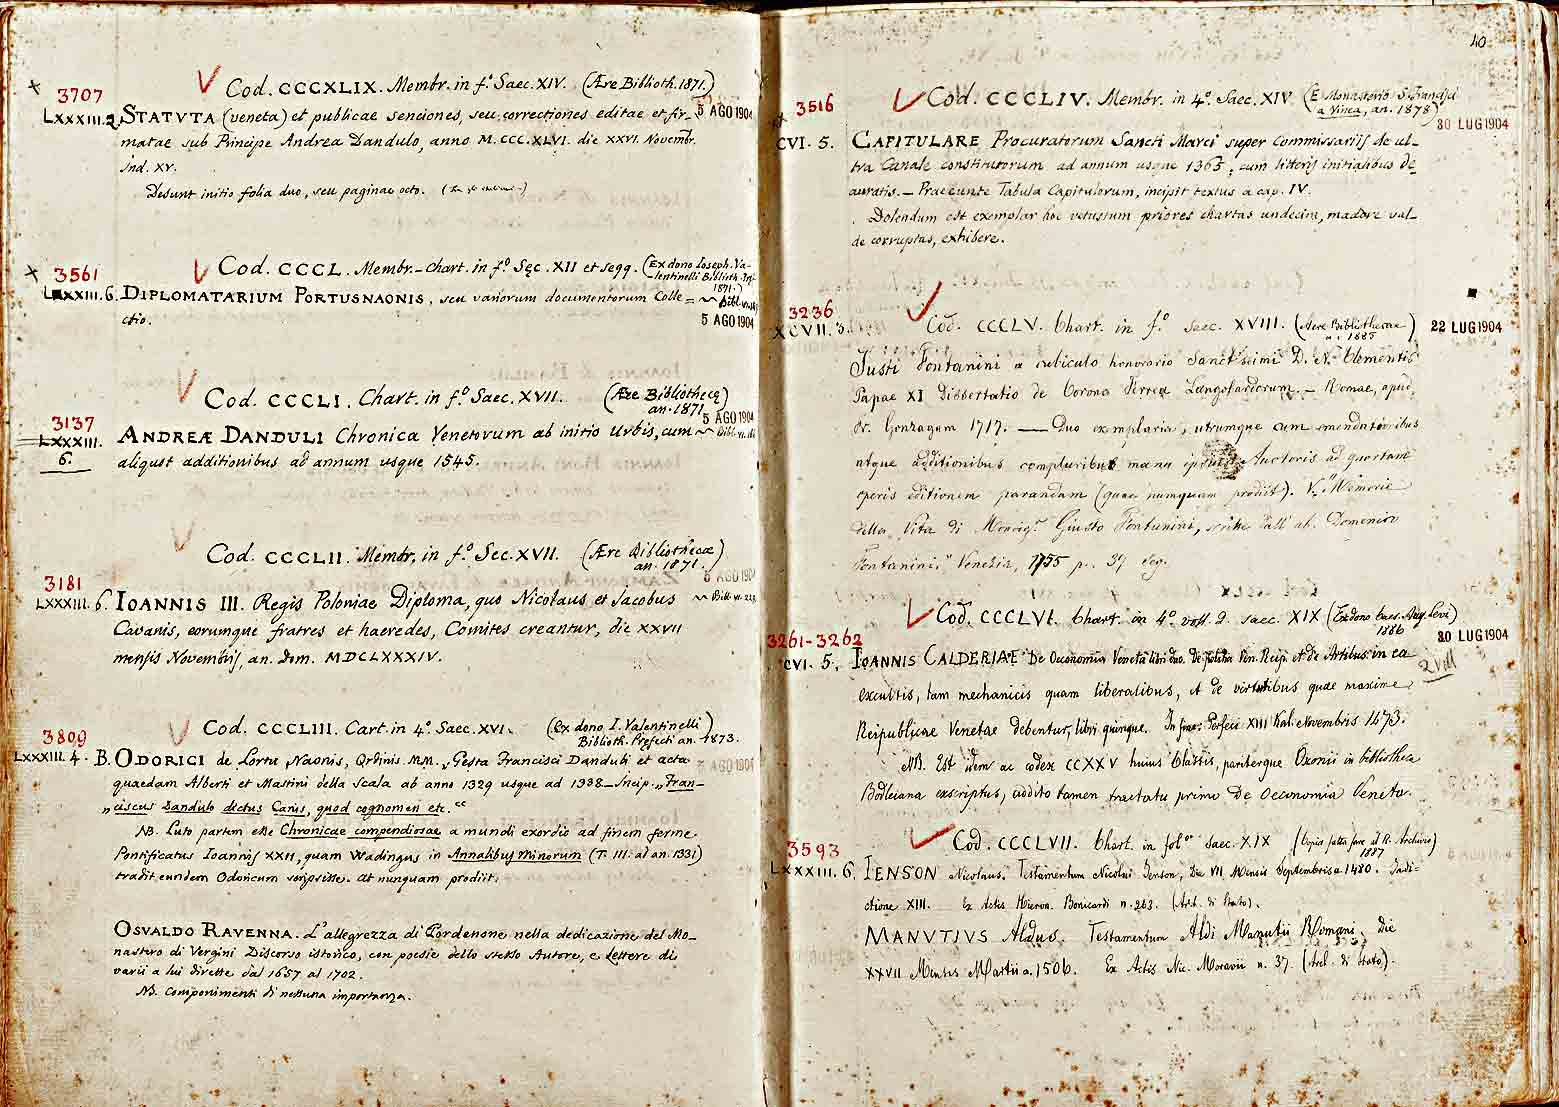 3707
LXXXIII. 2.
Cod. CCCXLIX. Membr. in f.º Saec. XIV. (Ære Biblioth. 1871.)
STATVTA (veneta) et publicae senciones, seu correctiones editae et fir-
5 AGO 1904
matae sub Principe Andrea Dandulo, anno M.CCC.XLVI. die XXVI. Novembr.
Ind. XV.
Desunt initio folia duo, seu paginae octo.
3561
LXXXIII. 6.
Cod. CCCL. Membr.-chart. in f.º Sęc. XII et seqq. (Ex dono Ioseph. Va-
lentinelli Biblioth.
1871.)
DIPLOMATARIUM PORTUSNAONIS, seu variorum documentorum Colle=
ctio.
5 AGO 1904
3137
LXXXIII.
6.
Cod. CCCLI. Chart. in f.º Saec. XVII. (Ære Bibliothecę
an. 1871
5 AGO 1904
ANDREÆ DANDULI Chronica Venetorum ab initio Urbis, cum
aliquot additionibus ad annum usque 1545.
3181
LXXXIII. 6.
Cod. CCCLII. Membr. in f.º Sec. XVII. (Ære Bibliothecae
an. 1871.)
5 AGO 1904
IOANNIS III. Regis Poloniae Diploma, quo Nicolaus et Jacobus
Cavanis, eorumque fratres et haeredes, Comites creantur, die XXVII
mensis Novembris an. dom. MDCLXXXIV.
3809
LXXXIII. 4.
Cod. CCCLIII. Cart. in 4.º Saec. XVI. (Ex dono I. Valentinelli
Biblioth. Pręfecti an. 1873.
B. ODORICI de Portu Naonis, Ordinis M.M. Gesta Francisci Danduli et acta
AGO 1904
quaedam Alberti et Mastini della Scala ab anno 1329 usque ad 1338.—Incip. „Fran-
„ciscus Dandulo dictus Canis, quod cognomen etc.“
NB. Puto partem esse Chronicae compendiosae a mundi exordio ad finem ferme
Pontificatus Ioannis XXII, quam Wadingus in Annalibus Minorum (T. III. al an. 1331)
tradit eundem Odoricum scripsisse. At nunquam prodiit.
OSVALDO RAVENNA. L'allegrezza di Pordenone nella dedicazione del Mo-
nastero di Vergini Discorso istorico, con poesie dello stesso Autore, e Lettere di
varii a lui dirette dal 1657 al 1702.
NB. Componimenti di nessuna importanza.
40
3516
CVI. 5.
Cod. CCCLIV. Membr. in 4.º Saec. XIV (E Monasterio S. Francisci
a Vinea, an. 1878)
30 LUG 1904
CAPITULARE Procuratorum Sancti Marci super Commissariis de ul-
tra Canale constitutorum ad annum usque 1365, cum litteris initialibus de
auratis. — Praeeunte Tabula Capitulorum, incipit textus a cap. IV.
Dolendum est exemplar hoc vetustum priores chartas undecim, madore val-
de corruptas, exhibere.
3236
XCVII. 3.
Cod. CCCLV. Chart. in f.º saec. XVIII. (Aere Bibliothecae
a. 1885
22 LUG 1904
Justi Fontanini a cubiculo honorario Sanctissimi D. N. Clementis
Papae XI Dissertatio de Corona Ferrea Langobardorum. — Romae, apud
Fr. Gonzagam 1717. — Duo exemplaria, utrumque cum emendationibus
atque additionibus compluribus manu ipsius Auctoris ad quartam
operis editionem parandam (quae numquam prodiit). V. "Memorie
della Vita di Monsig.r Giusto Fontanini, scritte dall' ab. Domenico
Fontanini" Venezia, 1755 p. 39 seg.
3261-3262
CVI. 5.
Cod. CCCLVI. Chart. in 4.º voll. 2. saec. XIX (Ex dono Ang. Levi)
1886
30 LUG 1904
2 voll
IOANNIS CALDERIAE De Oeconomia Veneta libri duo. De politia Ven. Reip. et de Artibus in ea
excultis, tam mechanicis quam liberalibus, et de virtutibus quae maxime
Reipublicae Venetae debentur, libri quinque. In fine: Perfeci XIII Kal. Novembris 1473.
NB. Est idem ac codex CCXXV huius Classis, pariterque Oxonii in bibliotheca
Bodleiana exscriptus, addito tamen tractatu primo De Oeconomia Veneta.
3593
LXXXIII. 6.
Cod. CCCLVII. Chart. in fol.º saec. XIX (Copia fatta fare al R. Archivio)
1887
IENSON Nicolaus. Testamentum Nicolai Jenson, Die VII Mensis Septembris a. 1480. Indi-
ctione XIII. Ex Actis Hieron. Bonicardi n. 263. (Arch. di Stato).
MANVTIVS Aldus. Testamentum Aldi Manutii Romani, die
XXVII Mensis Martii a. 1506. Ex Actis Nic. Moravii n. 37. (Arch. di Stato).